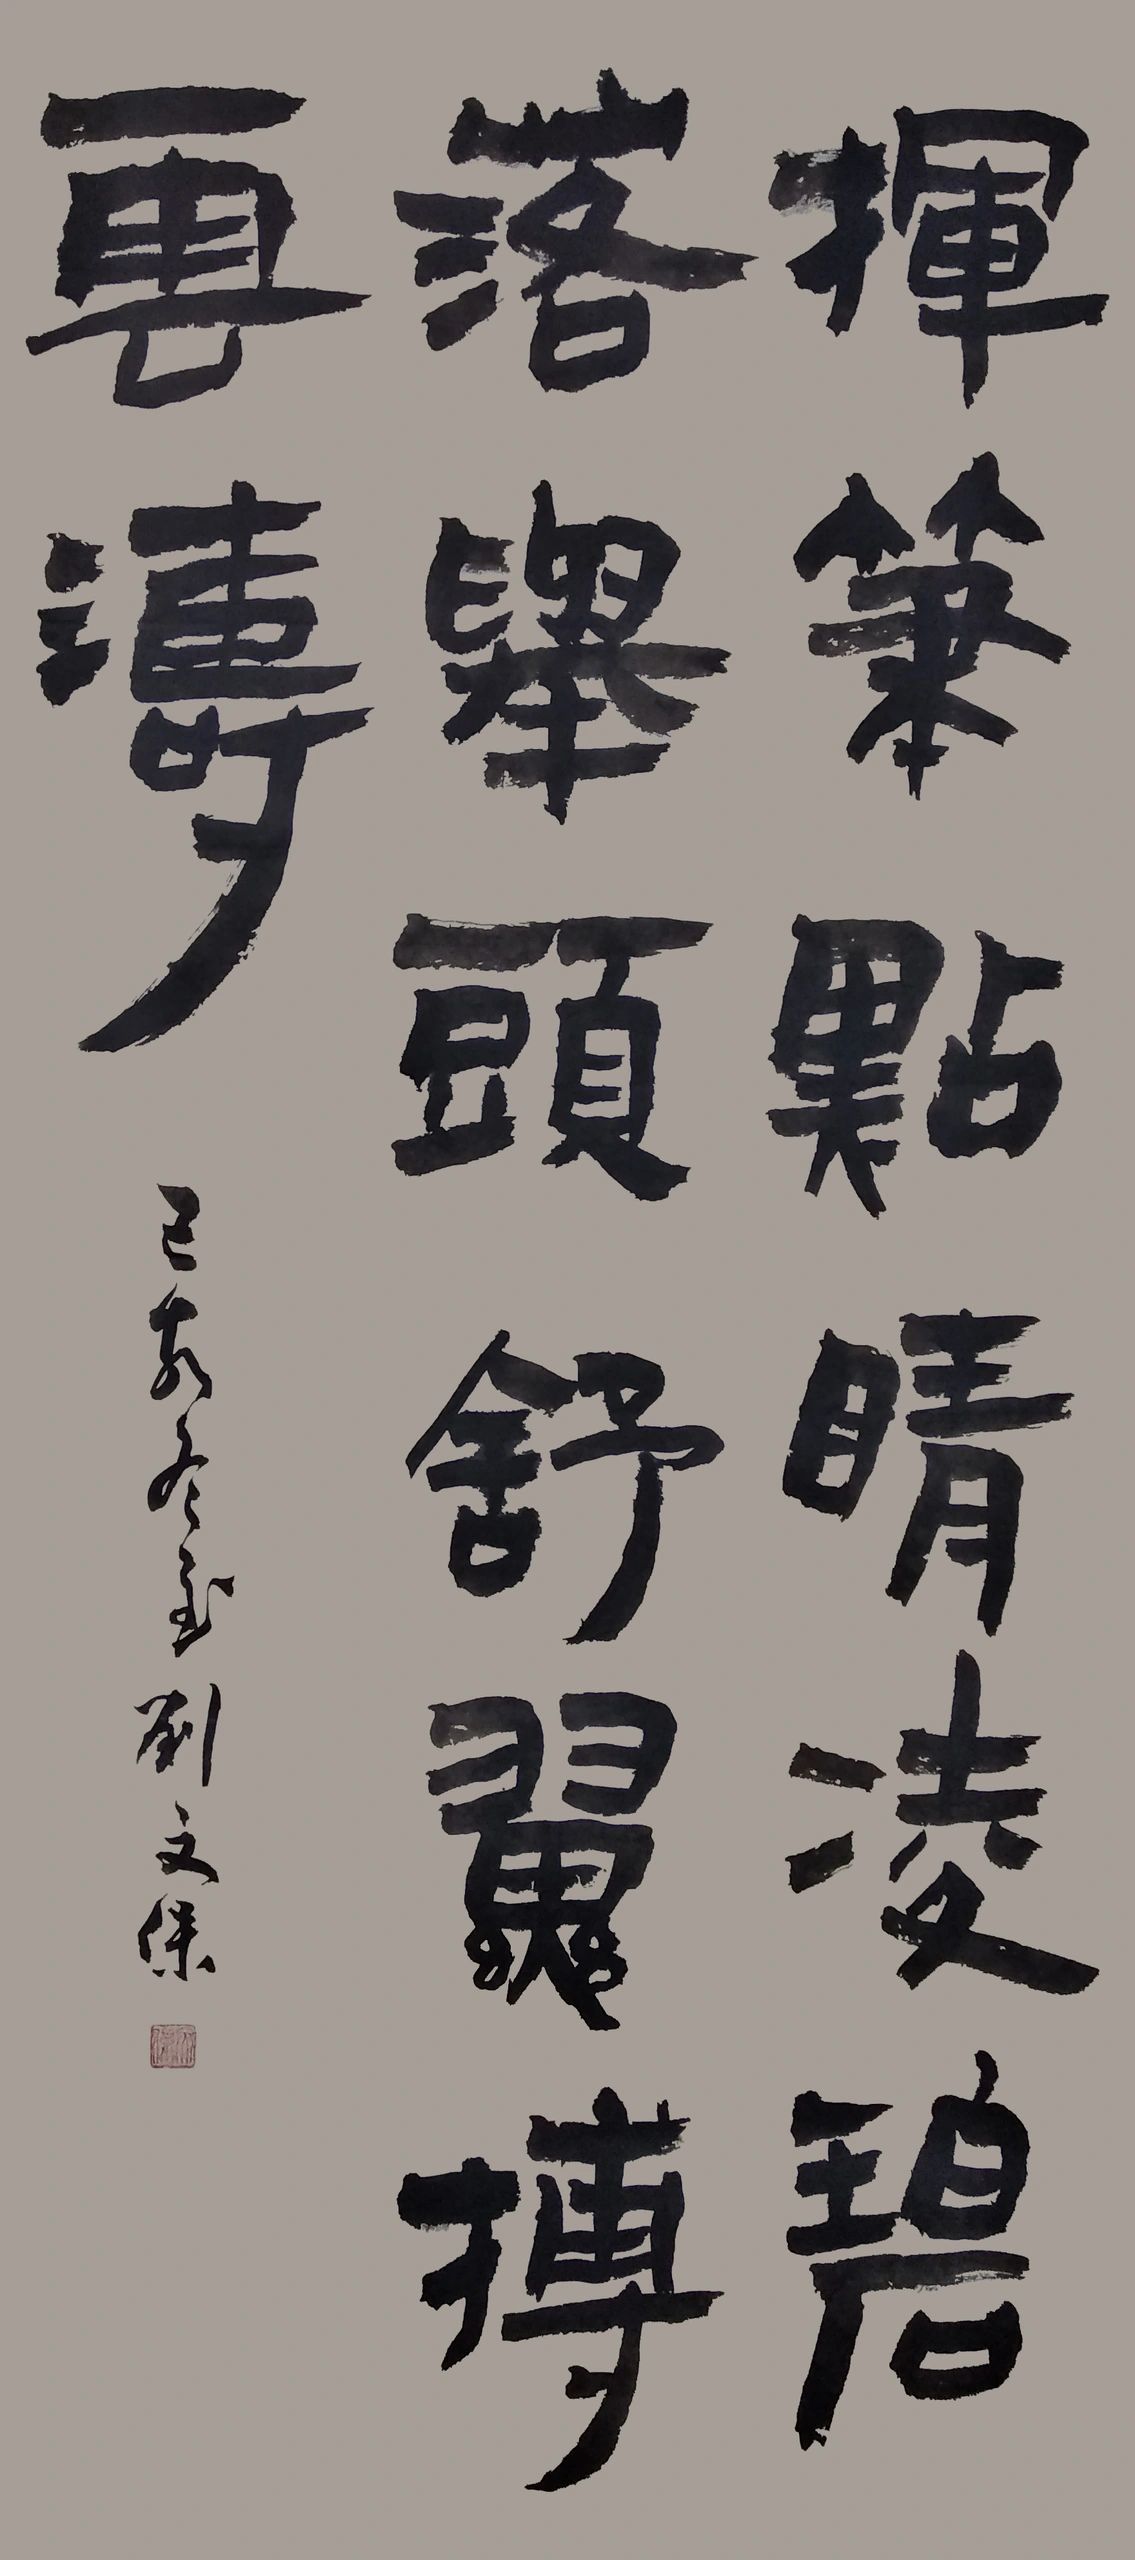 揮筆點睛凌碧
落舉頭舒翼搏
雲濤
己亥冬至劉文保